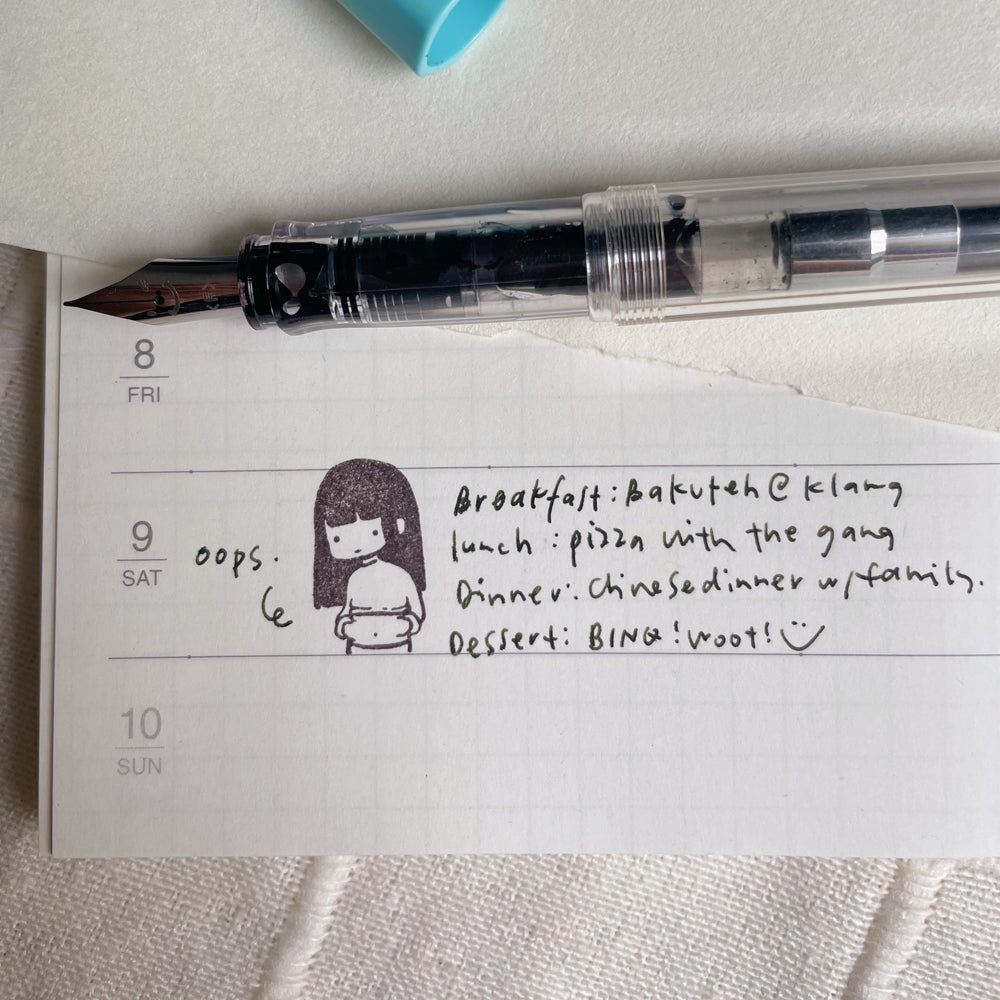 8
FRI
9
SAT
oops.
Breakfast: Bakuteh @ klang
lunch : pizza with the gang
Dinner: Chinese dinner w/ family.
Dessert: BING! woot!
10
SUN